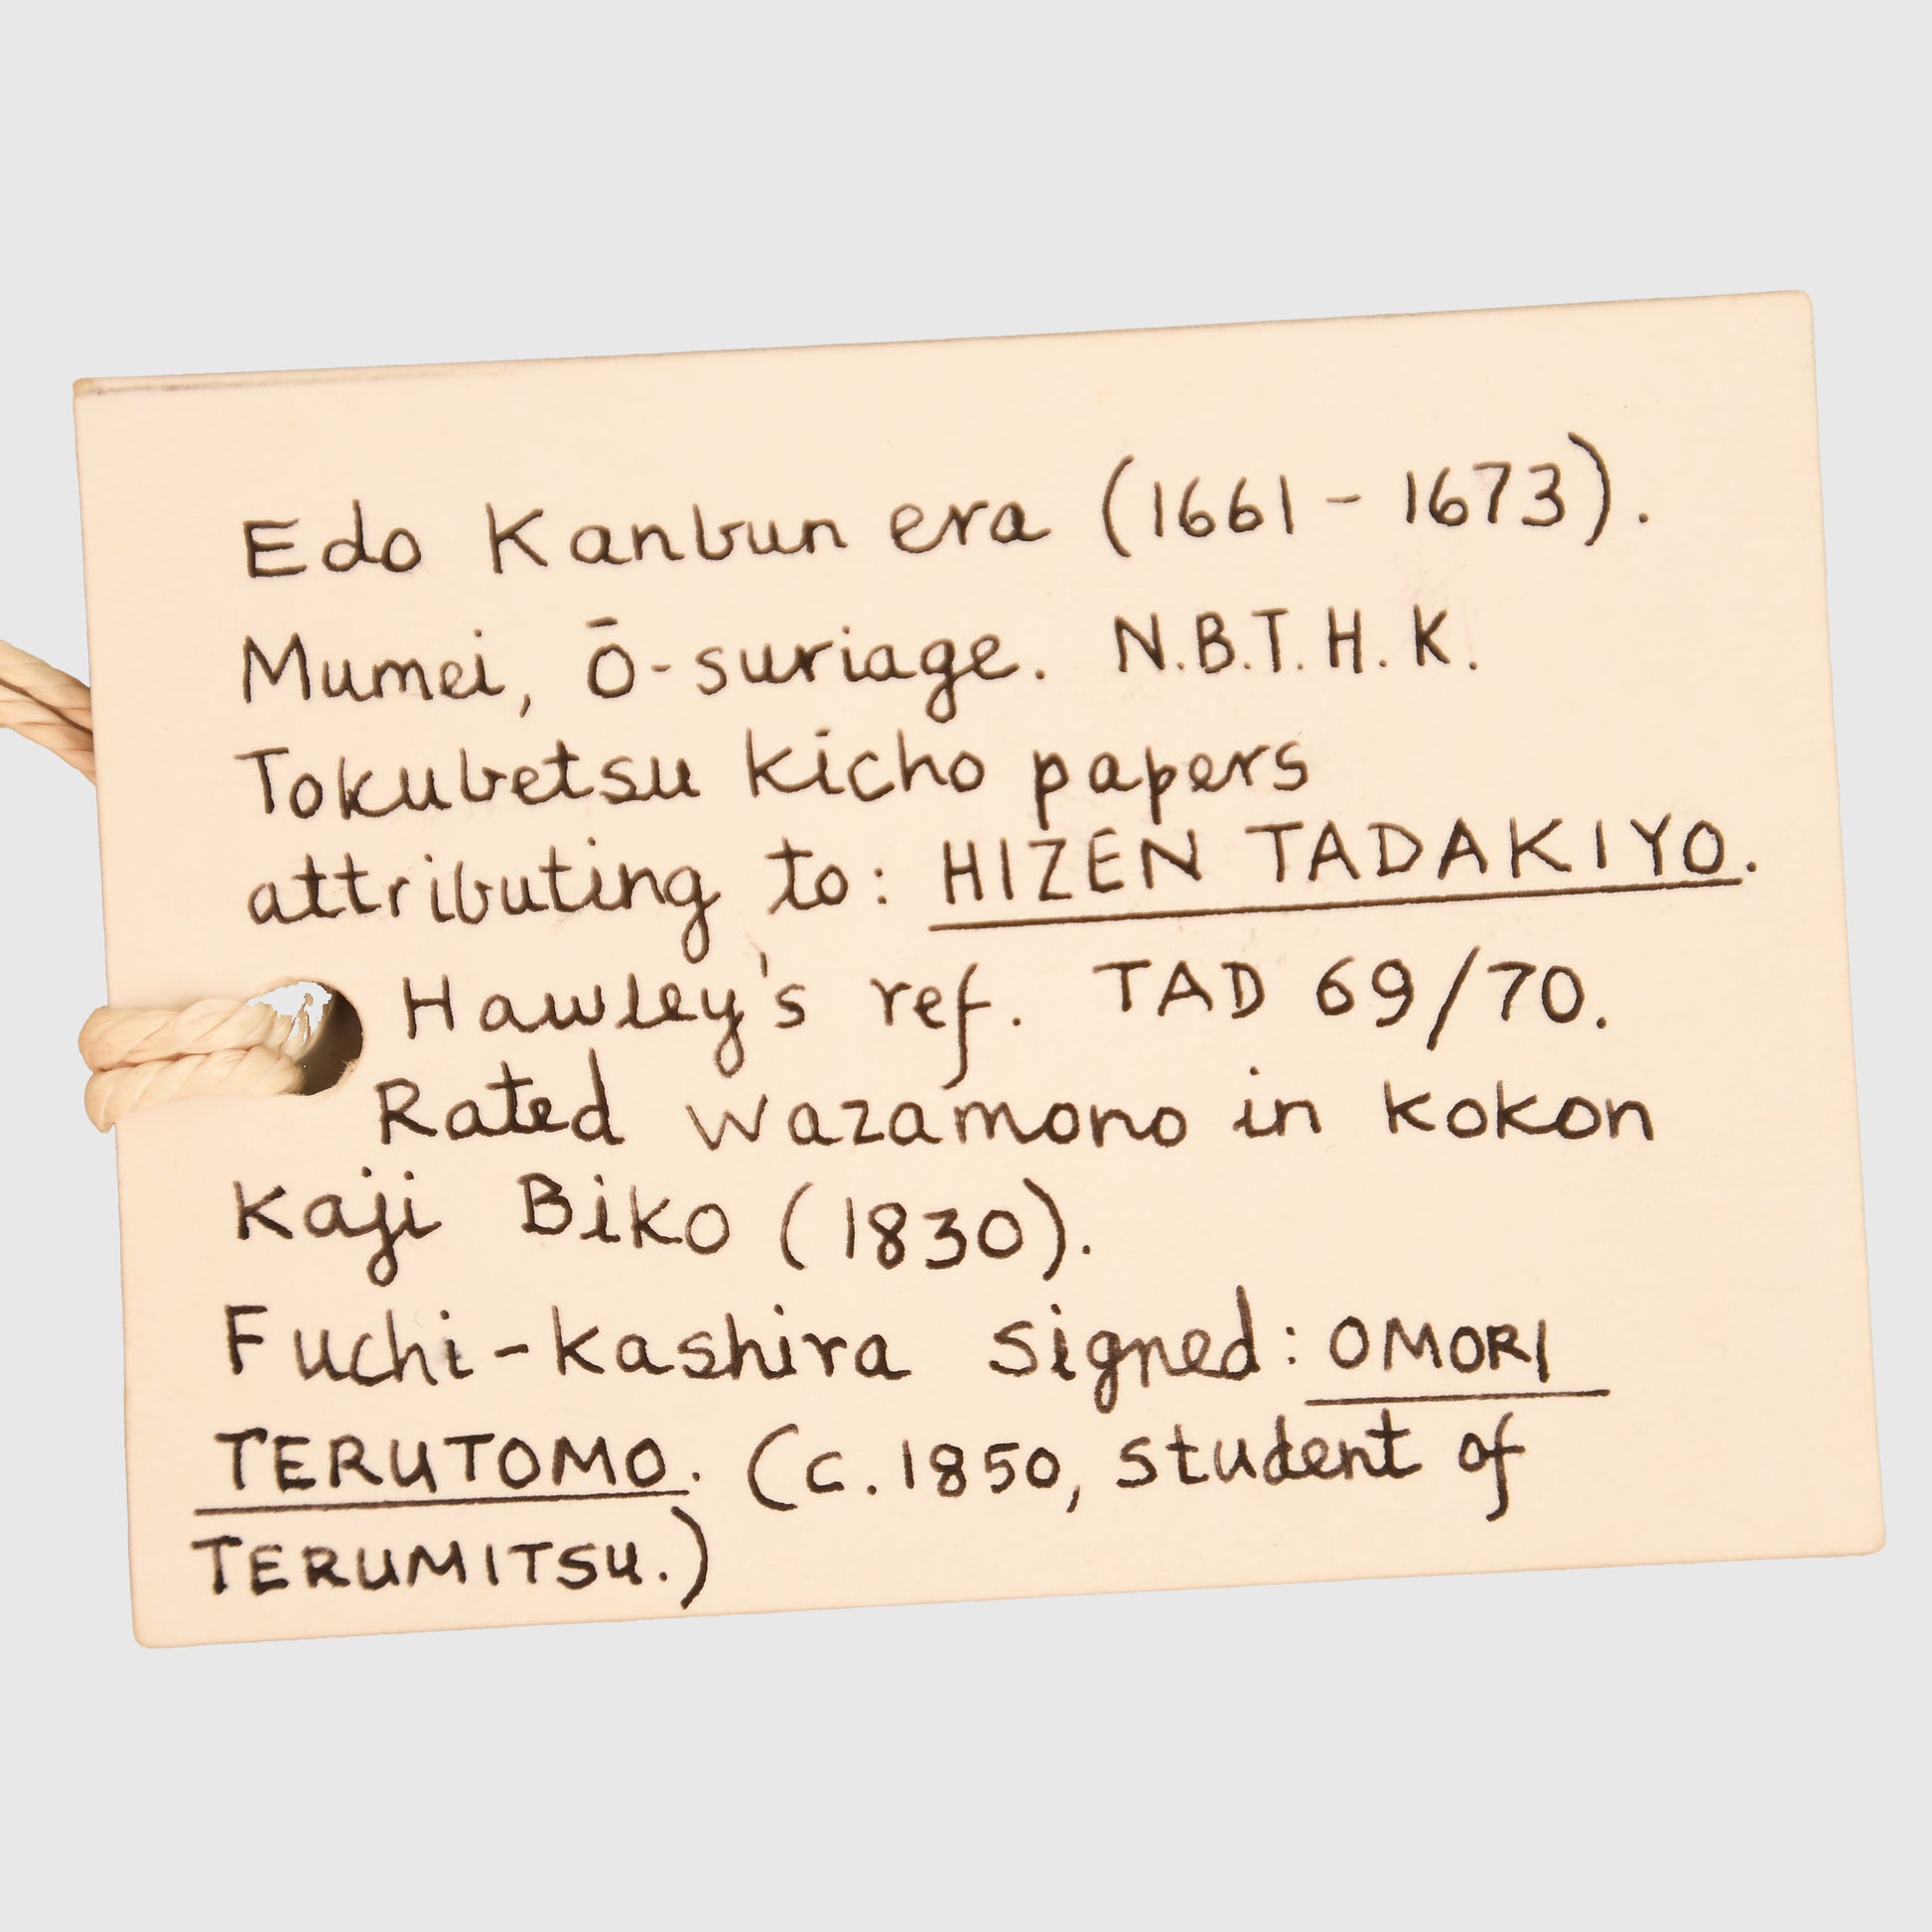 Edo Kanbun era (1661 - 1673).
Mumei, ō-suriage. N.B.T.H.K.
Tokubetsu kicho papers
attributing to: HIZEN TADAKIYO.
Hawley's ref. TAD 69/70.
Rated wazamono in kokon
kaji Biko (1830).
Fuchi-kashira signed: OMORI
TERUTOMO. (c.1850, student of
TERUMITSU.)